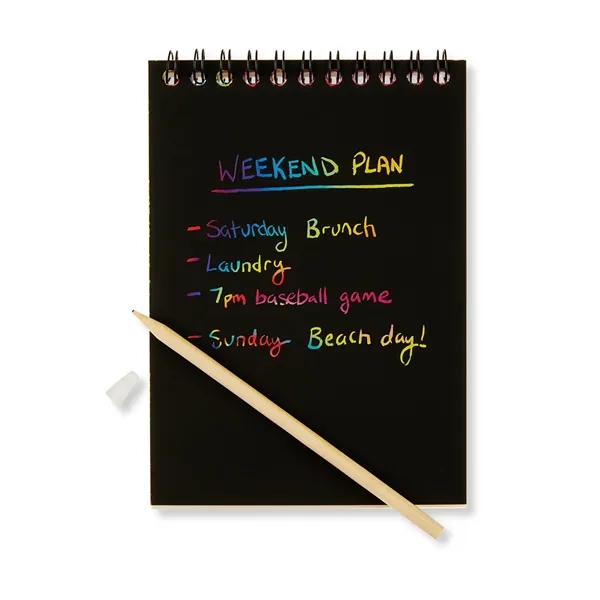 WEEKEND PLAN
- Saturday Brunch
- Laundry
- 7pm baseball game
- Sunday Beach day!